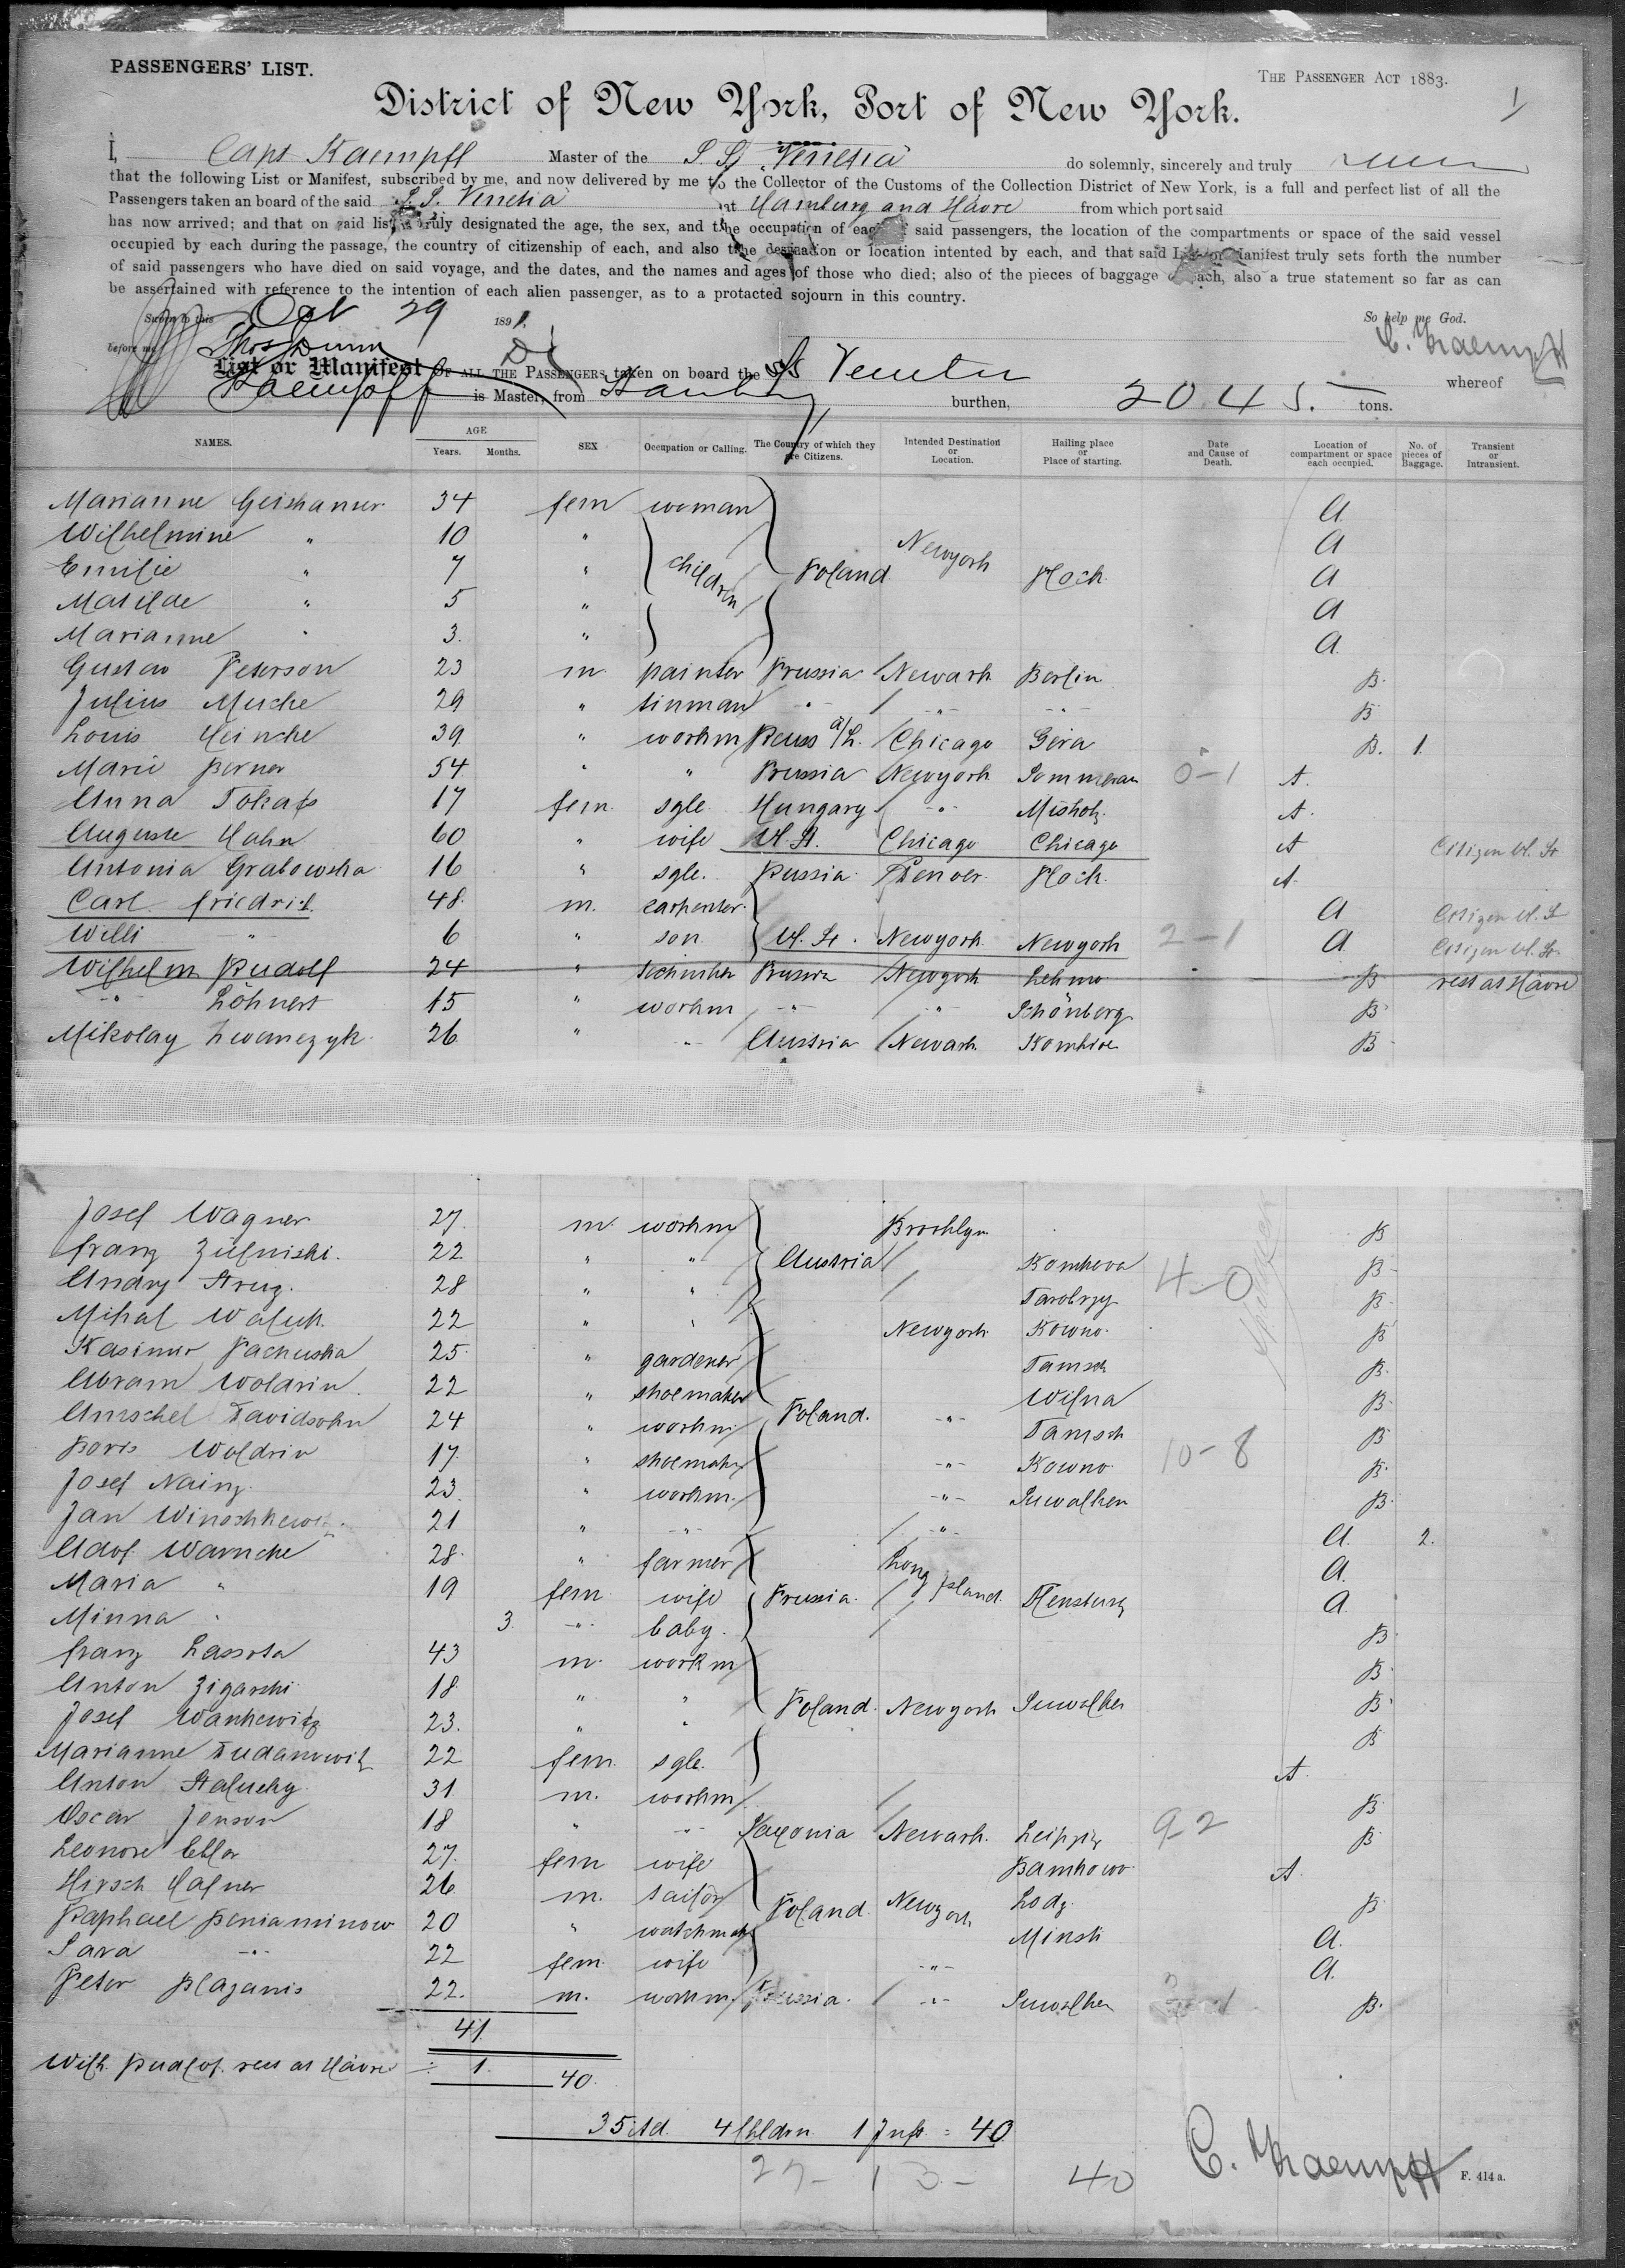 PASSENGERS' LIST.
THE PASSENGER ACT 1883.
1
District of New York, Port of New York.
I, Capt Kaempff Master of the S. S. Venetia do solemnly, sincerely and truly
that the following List or Manifest, subscribed by me, and now delivered by me to the Collector of the Customs of the Collection District of New York, is a full and perfect list of all the
Passengers taken an board of the said S. S. Venetia at Hamburg and Hâvre from which port said
has now arrived; and that on said list is truly designated the age, the sex, and the occupation of each of said passengers, the location of the compartments or space of the said vessel
occupied by each during the passage, the country of citizenship of each, and also the destination or location intented by each, and that said List or Manifest truly sets forth the number
of said passengers who have died on said voyage, and the dates, and the names and ages of those who died; also of the pieces of baggage of each, also a true statement so far as can
be assertained with reference to the intention of each alien passenger, as to a protacted sojourn in this country.
Sworn to this Oct 29 1891. So help me God.
before me Thos Dunn C. Kaempff
List or Manifest OF ALL THE PASSENGERS taken on board the SS Venetia whereof
Kaempff is Master, from Hamburg burthen, 2045. tons.
NAMES. AGE Years. Months. SEX Occupation or Calling. The Country of which they are Citizens. Intended Destination or Location. Hailing place or Place of starting. Date and Cause of Death. Location of compartment or space each occupied. No. of pieces of Baggage. Transient or Intransient.
Marianne 34 fem woman A
Wilhelmine " 10 " A
Emilie " 7 " children Poland Newyork Plock A
Matilde " 5 " A
Marianne " 3. " A
Gustav Peterson 23 m painter Prussia Newark Berlin B.
Julius Muche 29 " tinman -"- -"- -"- B
Louis Heincke 39 " workm Reuss a/L. Chicago Gera B. 1.
Marie Berner 54 " " Prussia Newyork Sommerau 0-1 A.
Anna Tokats 17 fem. sgle. Hungary -"- A.
Auguste Hahn 60 " wife U. St. Chicago Chicago A Citizen U. St
Antonia Grabowska 16 " sgle. Russia Denver Plock A
Carl Friedrich 48. m. carpenter. A Citizen U. St
Willi -"- 6 " son U. St. Newyork Newyork 2-1 A Citizen U. St.
Wilhelm Rudolf 24 " Prussia Newyork B rest at Hâvre
-"- Löhnert 15 " workm -"- -"- Schönberg B
Mikolay 26 " -"- Austria Newark B
Josef Wagner 27. m workm Brooklyn B
Franz 22 " " Austria B
Andry 28 " " 4-0 B
Mihal 22 " " Newyork Kowno. B
Kasimir 25. " gardener B.
Abram Woldrin. 22 " shoemaker Wilna B
Amschel Davidsohn 24 " workm. Poland. -"- B
Boris Woldrin 17. " shoemaker -"- Kowno 10-8 B.
Josef 23 " workm. -"- Suwalken B.
Jan 21 " -"- -"- A. 2.
Adof Warncke 28. " farmer Long Island. A.
Maria " 19 fem wife Prussia. A
Minna " 3. -"- baby. B
Franz Lassota 43 m. workm B
Anton 18 " " Poland. Newyork Suwalken B
Josef Wankewitz 23. " " B
Marianne Dudanowitz 22 fem. sgle. A.
Anton 31 m. workm B
Oscar Jenson 18 " -"- Saxonia Newark. Leipzig 9-2 B
Leonore 27. fem wife A
Hirsch Hafner 26 m. tailor Poland. Newyork Lodz B
Raphael Beniaminow 20 " watchmak Minsk A.
Sara -"- 22 fem. wife -"- A.
Peter Plazanis 22. m. workm. Russia. -"- Suwalken B.
41
Wilh. Rudolf. rest at Hâvre ÷ 1. 40.
35 Ad. 4 Chldrn. 1 Inft = 40
27 - 13 - 40
C. Kaempff
F. 414 a.